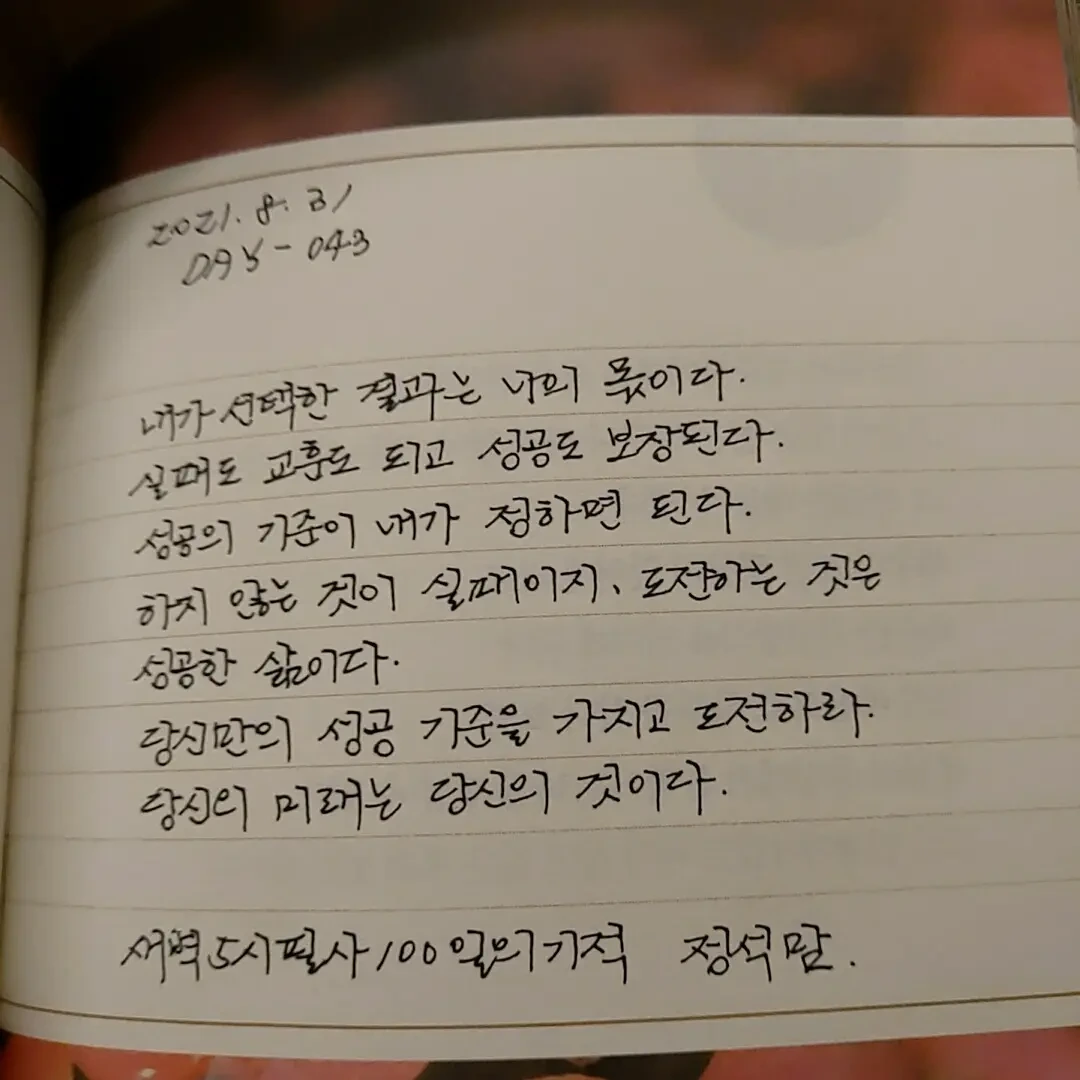 2021. 8. 31
DAY - 043
내가 선택한 결과는 나의 몫이다.
실패도 교훈도 되고 성공도 보장된다.
성공의 기준이 내가 정하면 된다.
하지 않는 것이 실패이지, 도전하는 것은
성공한 삶이다.
당신만의 성공 기준을 가지고 도전하라.
당신의 미래는 당신의 것이다.
새벽5시필사100일의기적 정석맘.